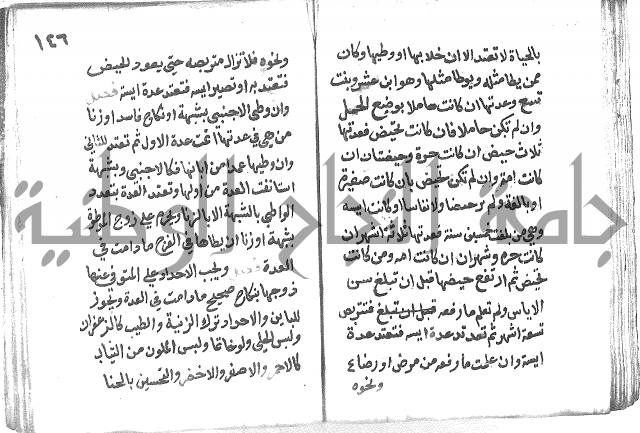 بالحياة لا تعتد الا ان خلا بها او وطيها وكان
ممن يطا مثله ويوطا مثلها وهو ابن عشر وبنت
تسع وعدتها ان كانت حاملا بوضع الحمل
وان لم تكن حاملا فان كانت تحيض فعدتها
ثلاث حيض ان كانت حرة وحيضتان ان
كانت امة وان لم تكن تحيض بان كانت صغيرة
او بالغة ولم ترحيضا ولا نفاسا او كانت ايسة
وهي من بلغت خمسين سنة فعدتها ثلاثة اشهر ان
كانت حرة وشهران ان كانت امة ومن كانت
تحيض ثم ارتفع حيضها قبل ان تبلغ سن
الاياس ولم تعلم ما رفعه فتتربص
تسعة اشهر ثم تعتد عدة ايسة
ايسة وان علمت ما رفعه من مرض او رضاع
ونحوه
١٤٦
ونحوه فلا تزال متربصة حتى يعود الحيض
فتعتد به او تصير ايسة فتعتد عدة ايسة فصل
وان وطي الاجنبي بشبهة او نكاح فاسد او زنا
من هي في عدتها اتمت عدة الاول ثم تعتد للثاني
وان وطيها عمدا من ابانها فكالاجنبي وبشبهة
استانفت العدة من اولها وتعتد العدة بتعدد
الواطي بالشبهة لا بالزنا ويحرم على زوج الموطوة
بشبهة او زنا ان يطاها في الفرج ما دامت في
العدة فصل ويجب الاحداد على المتوفى عنها
زوجها بنكاح صحيح ما دامت في العدة ويجوز
للباين والاحداد ترك الزينة والطيب كالزعفران
ولبس الحلي ولو خاتما ولبس الملون من الثياب
كالاحمر والاصفر والاخضر والتحسين بالحنا
جامعة النجاح الوطنية